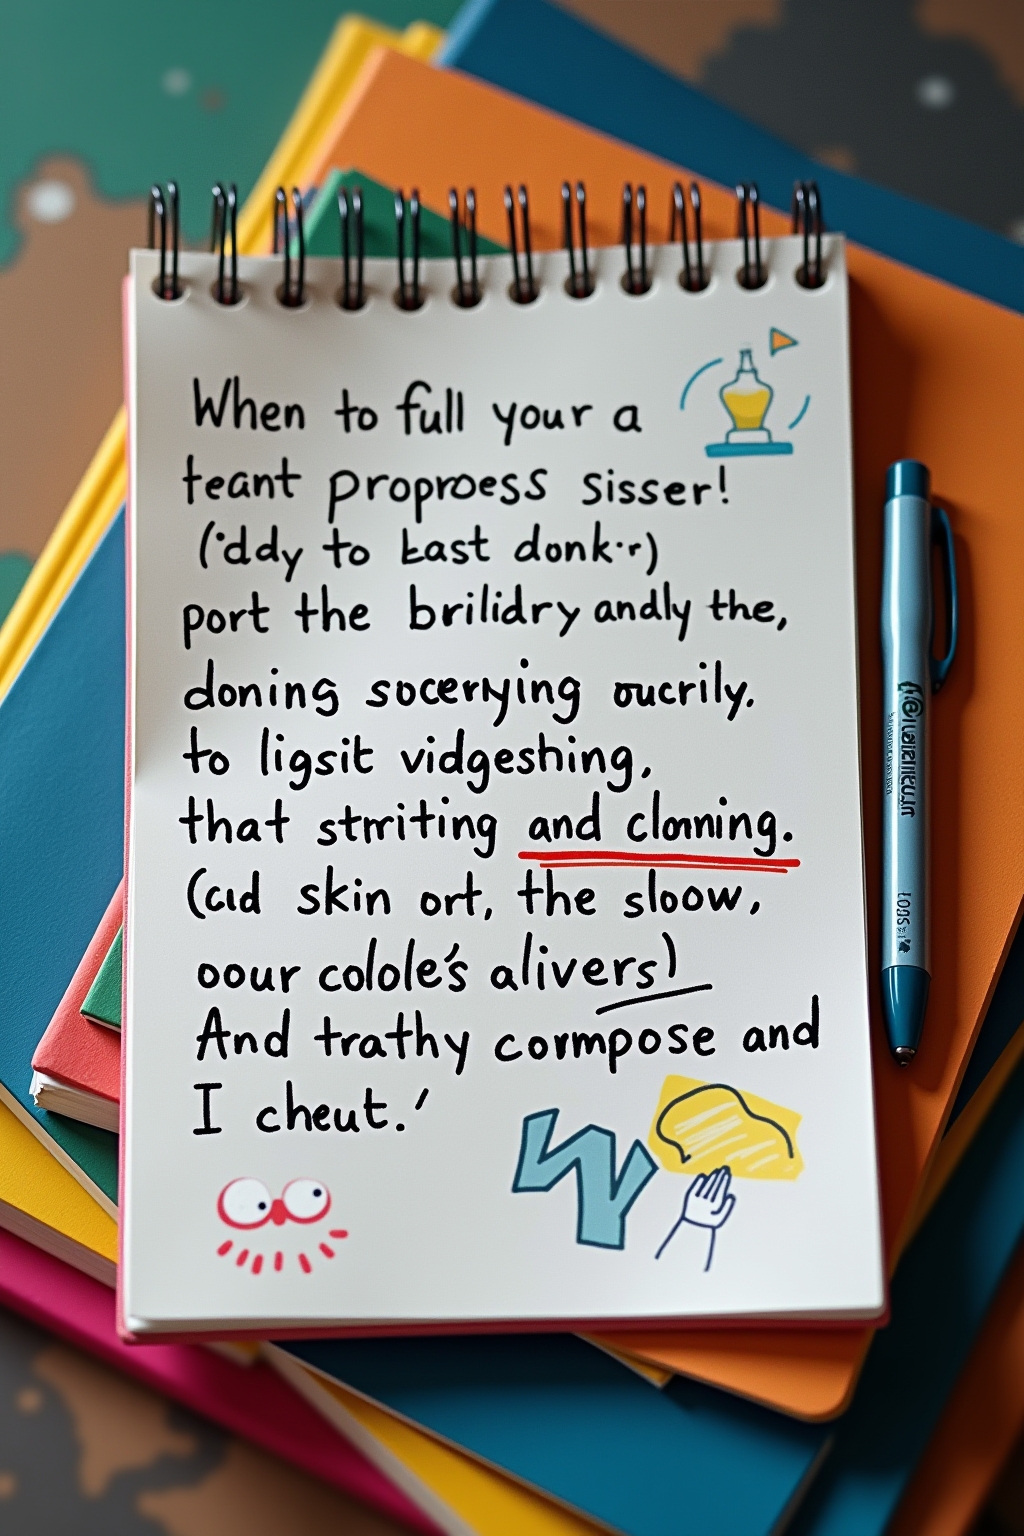 When to full your a
teant proproess sisser!
('ddy to East donk·r)
port the brilidry andly the,
doning socerying oucrily.
to ligsit vidgeshing,
that strriting and clonning.
(cid skin ort, the sloow,
oour colole's alivers)
And trathy cormpose and
I cheut.'